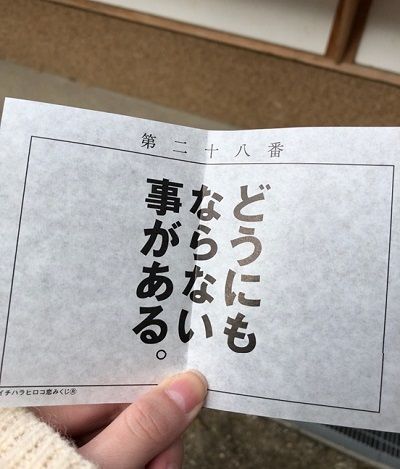 第二十八番
どうにも
ならない
事がある。
イチハラヒロコ恋みくじ